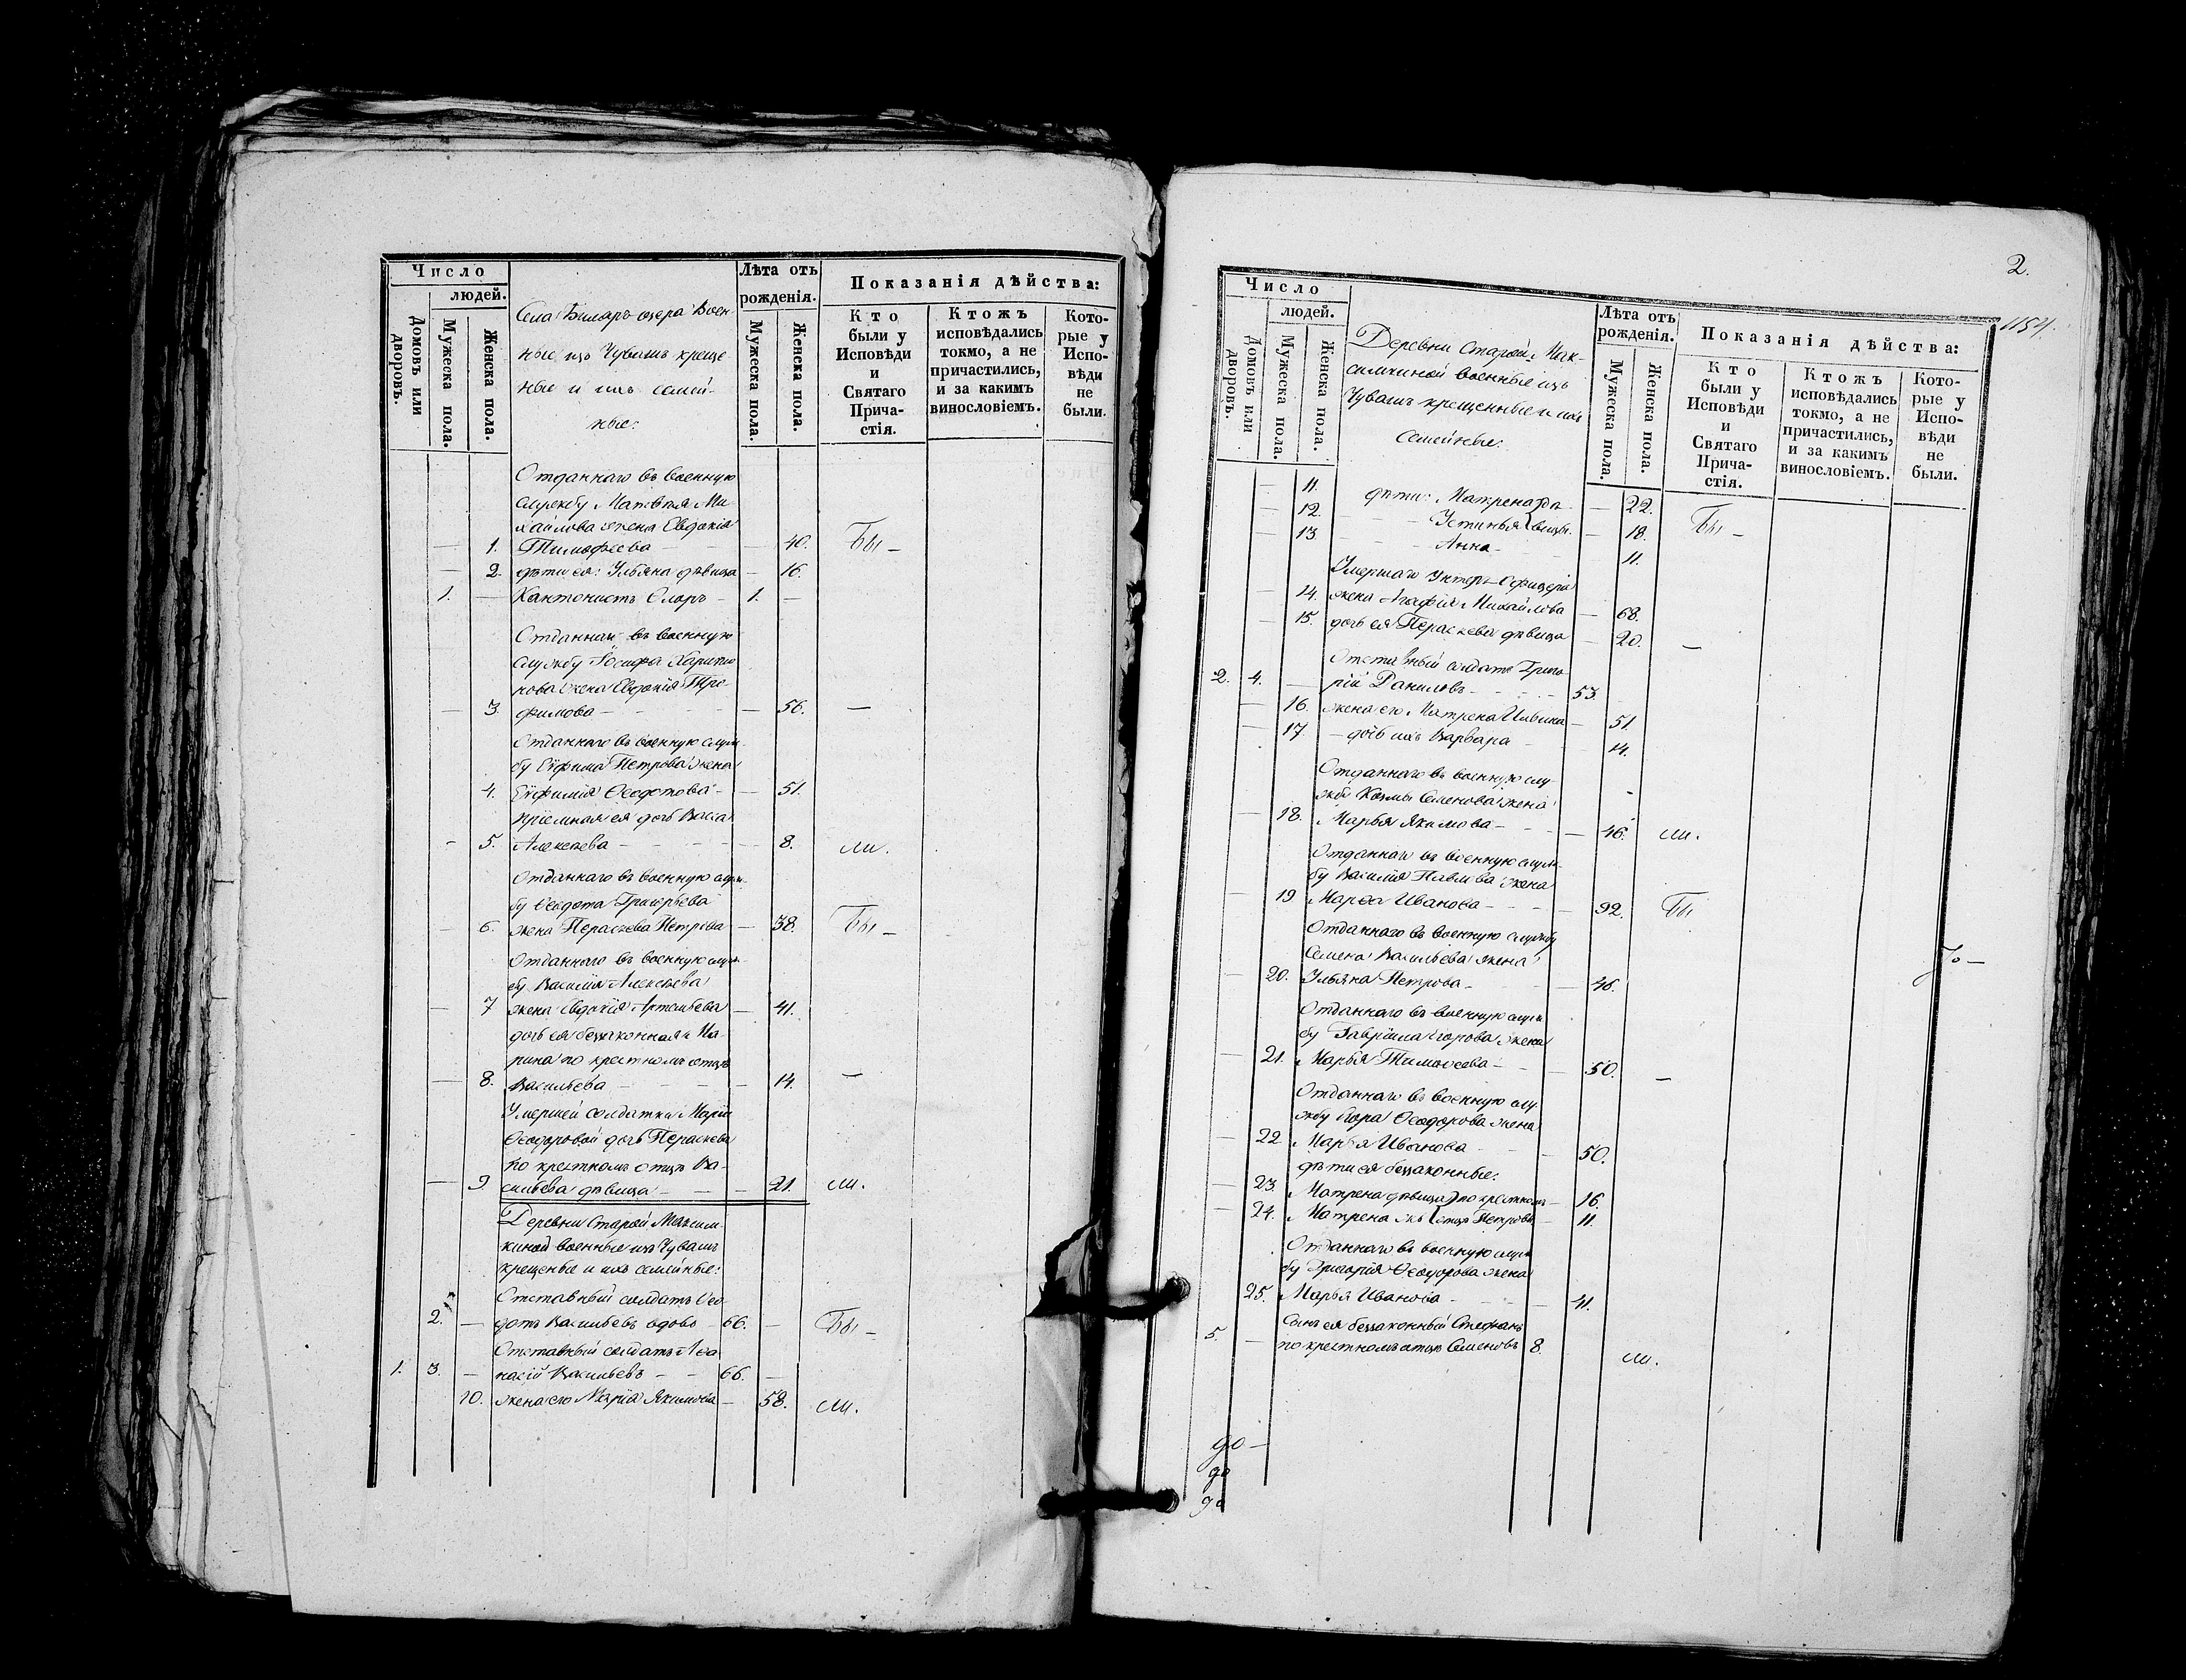 Число
людей.
Домовъ или дворовъ.
Мужеска пола.
Женска пола.
Села Биляръ озера Воен-
ные изъ Чувашъ креще-
ные и ихъ семей-
ные:
Лѣта отъ
рожденія.
Мужеска пола.
Женска пола.
Показанія дѣйства:
Кто
были у
Исповѣди
и
Святаго
Прича-
стія.
Ктожъ
исповѣдались
токмо, а не
причастились,
и за какимъ
винословіемъ.
Кото-
рые у
Испо-
вѣди
не
были.
Отданнаго въ военную
службу Матвея Ми-
хайлова жена Евдокія
— 1. Тимофеева — — 40. Бы —
— 2. дѣти ея: Ульяна дѣвица — 16.
1. — Кантонистъ — 1. —
Отданнаго въ военную
службу Іосифа Харито-
нова жена Евдокія Тро-
— 3. фимова — — 56. —
Отданнаго въ военную служ-
бу Ефима Петрова жена
4. Евфимія Ѳеодотова — — 51.
пріемная ея дочь Васса
- 5. Алексѣева — — 8. ли.
Отданнаго въ военную служ-
бу Ѳеодота Григорьева
- 6. жена Пераскева Петрова — 38. Бы —
Отданнаго въ военную служ-
бу Василія Алексѣева
— 7 жена Евдокія Артемьева — 41.
дочь ея беззаконная Ма-
рина по крестномъ отцѣ
— 8. Васильева — — 14. —
Умершей солдатки Маріи
Ѳеодоровой дочь Пераскева
по крестномъ отцѣ Ва-
— 9 сильева дѣвица — — 21. ли.
Деревни Старой Максим-
киной военные изъ Чувашъ
крещеные и ихъ семейные:
Отставный солдатъ Ѳео-
2. — дотъ Васильевъ вдовъ — 66. — Бы —
Отставный солдатъ Аѳа-
1. 3. — насій Васильевъ — — 66. —
10. жена его Марія Якимова — 58. ли.
2.
1154.
Число
людей.
Домовъ или дворовъ.
Мужеска пола.
Женска пола.
Деревни Старой Мак-
симкиной военные изъ
Чувашъ крещенные и ихъ
семейные:
Лѣта отъ
рожденія.
Мужеска пола.
Женска пола.
Показанія дѣйства:
Кто
были у
Исповѣди
и
Святаго
Прича-
стія.
Ктожъ
исповѣдались
токмо, а не
причастились,
и за какимъ
винословіемъ.
Кото-
рые у
Испо-
вѣди
не
были.
— 11. дѣти: Матрена дѣ- — 22.
— 12. Устинья вицы. — 18. Бы —
— 13. Анна — 11.
Умершаго Унтеръ-Офицера
— 14. жена Агафія Михайлова — 68.
— 15. дочь ея Пераскева дѣвица — 20. —
Отставный солдатъ Григо-
2. 4. — рій Даниловъ — 53.
— 16. жена его Матрена Ильина — 51.
— 17 — дочь ихъ Варвара — 14.
Отданнаго въ военную слу-
жбу Козмы Семенова жена
— 18. Марья Якимова — — 46. ли.
Отданнаго въ военную служ-
бу Василія Павлова жена
— 19 Марѳа Иванова — — 92. Бы
Отданнаго въ военную службу
Семена Васильева жена
— 20. Ульяна Петрова — — 46.
Отданнаго въ военную служ-
бу Гавріила Егорова жена
— 21. Марья Тимоѳеева — — 50. —
Отданнаго въ военную слу-
жбу Егора Ѳеодорова жена
— 22 Марья Иванова — 50.
дѣти ея беззаконные:
— 23. Матрена дѣвица по крестномъ — 16.
— 24. Матрена отцѣ Петрова — 11.
Отданнаго въ военную служ-
бу Григорія Ѳеодорова жена
25. Марья Иванова — — 41.
Сынъ ея беззаконный Стефанъ
5. — по крестномъ отцѣ Семеновъ 8. ли.
до —
до
до